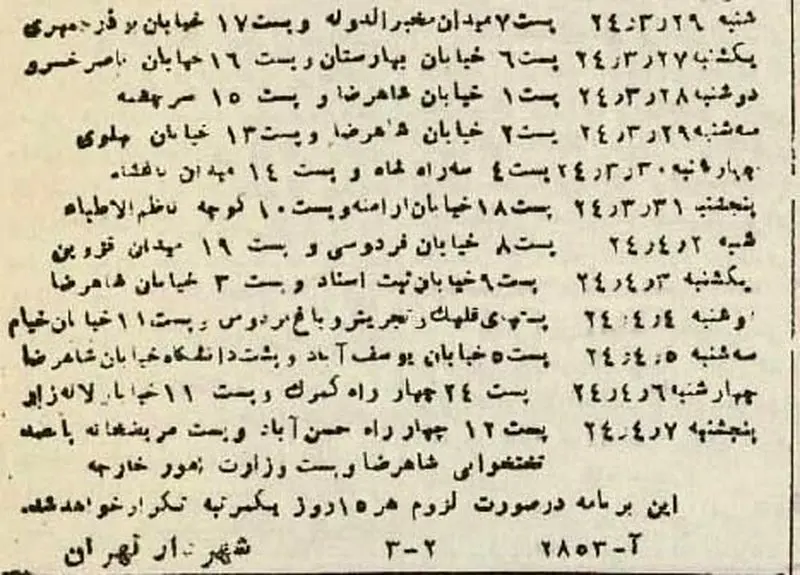 شنبه ۲۴٫۳٫۲۹ پست ۷ میدان مخبرالدوله و پست ۱۷ خیابان بوذرجمهری
یکشنبه ۲۴٫۳٫۲۷ پست ۶ خیابان بهارستان و پست ۱۶ خیابان ناصرخسرو
دوشنبه ۲۴٫۳٫۲۸ پست ۱ خیابان شاهرضا و پست ۱۵ سرچشمه
سه‌شنبه ۲۴٫۳٫۲۹ پست ۲ خیابان شاهرضا و پست ۱۳ خیابان پهلوی
چهارشنبه ۲۴٫۳٫۳۰ پست ۴ سه‌راه شاه و پست ۱۴ میدان باغشاه
پنجشنبه ۲۴٫۳٫۳۱ پست ۱۸ خیابان ارامنه و پست ۱۰ کوچه ناظم‌الاطباء
شنبه ۲۴٫۴٫۲ پست ۸ خیابان فردوسی و پست ۱۹ میدان قزوین
یکشنبه ۲۴٫۴٫۳ پست ۹ خیابان ثبت اسناد و پست ۳ خیابان شاهرضا
دوشنبه ۲۴٫۴٫۴ پستهای قلهک و تجریش و باغ فردوس و پست ۱۱ خیابان خیام
سه‌شنبه ۲۴٫۴٫۵ پست ۵ خیابان یوسف آباد و پشت دانشگاه خیابان شاهرضا
چهارشنبه ۲۴٫۴٫۶ پست ۲۴ چهار راه گمرک و پست ۱۱ خیابان لاله‌زار
پنجشنبه ۲۴٫۴٫۷ پست ۱۲ چهار راه حسن آباد و پست مریضخانه پانصد
تختخوابی شاهرضا و پست وزارت امور خارجه
این برنامه درصورت لزوم هر ۱۵ روز یکمرتبه تکرار خواهد شد.
آ-۲۸۵۳ ۲-۳ شهردار تهران